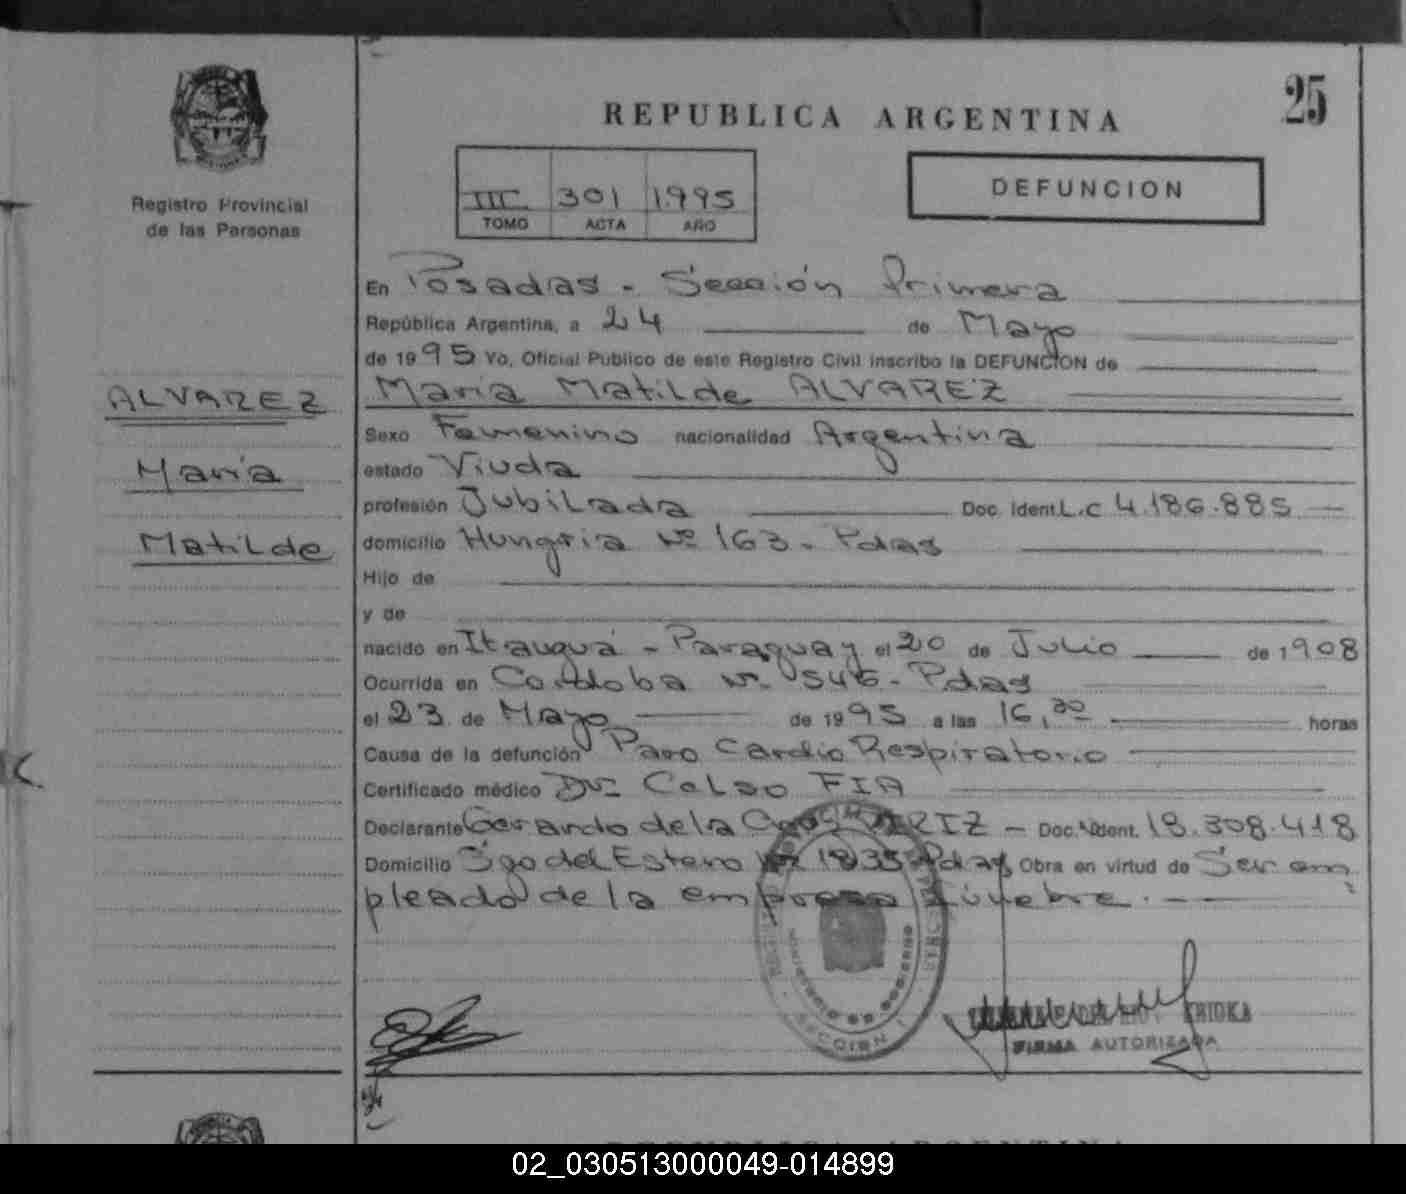 25
REPUBLICA ARGENTINA
DEFUNCION
III 301 1.995
TOMO ACTA AÑO
Registro Provincial
de las Personas
ALVAREZ
María
Matilde
En Posadas - Sección Primera
República Argentina, a 24 de Mayo
de 1995 Yo, Oficial Público de este Registro Civil inscribo la DEFUNCION de
María Matilde ALVAREZ
Sexo Femenino nacionalidad Argentina
estado Viuda
profesión Jubilada Doc. Ident. L.C 4.186.885
domicilio Hungría Nº 163 - Pdas
Hijo de
y de
nacido en Itauguá - Paraguay el 20 de Julio de 1908
Ocurrida en Cordoba Nº 545 - Pdas
el 23 de Mayo de 1995 a las 16,30 horas
Causa de la defunción Paro Cardio Respiratorio
Certificado médico Dr. Celso FIA
Declarante Gerardo de la Cruz Doc. Ident. 18.308.418
Domicilio Sgo del Estero Nº 1835 Pdas Obra en virtud de Ser em
pleado de la empresa fúnebre.
SECCION 1
FIRMA AUTORIZADA
REPUBLICA ARGENTINA
02_030513000049-014899